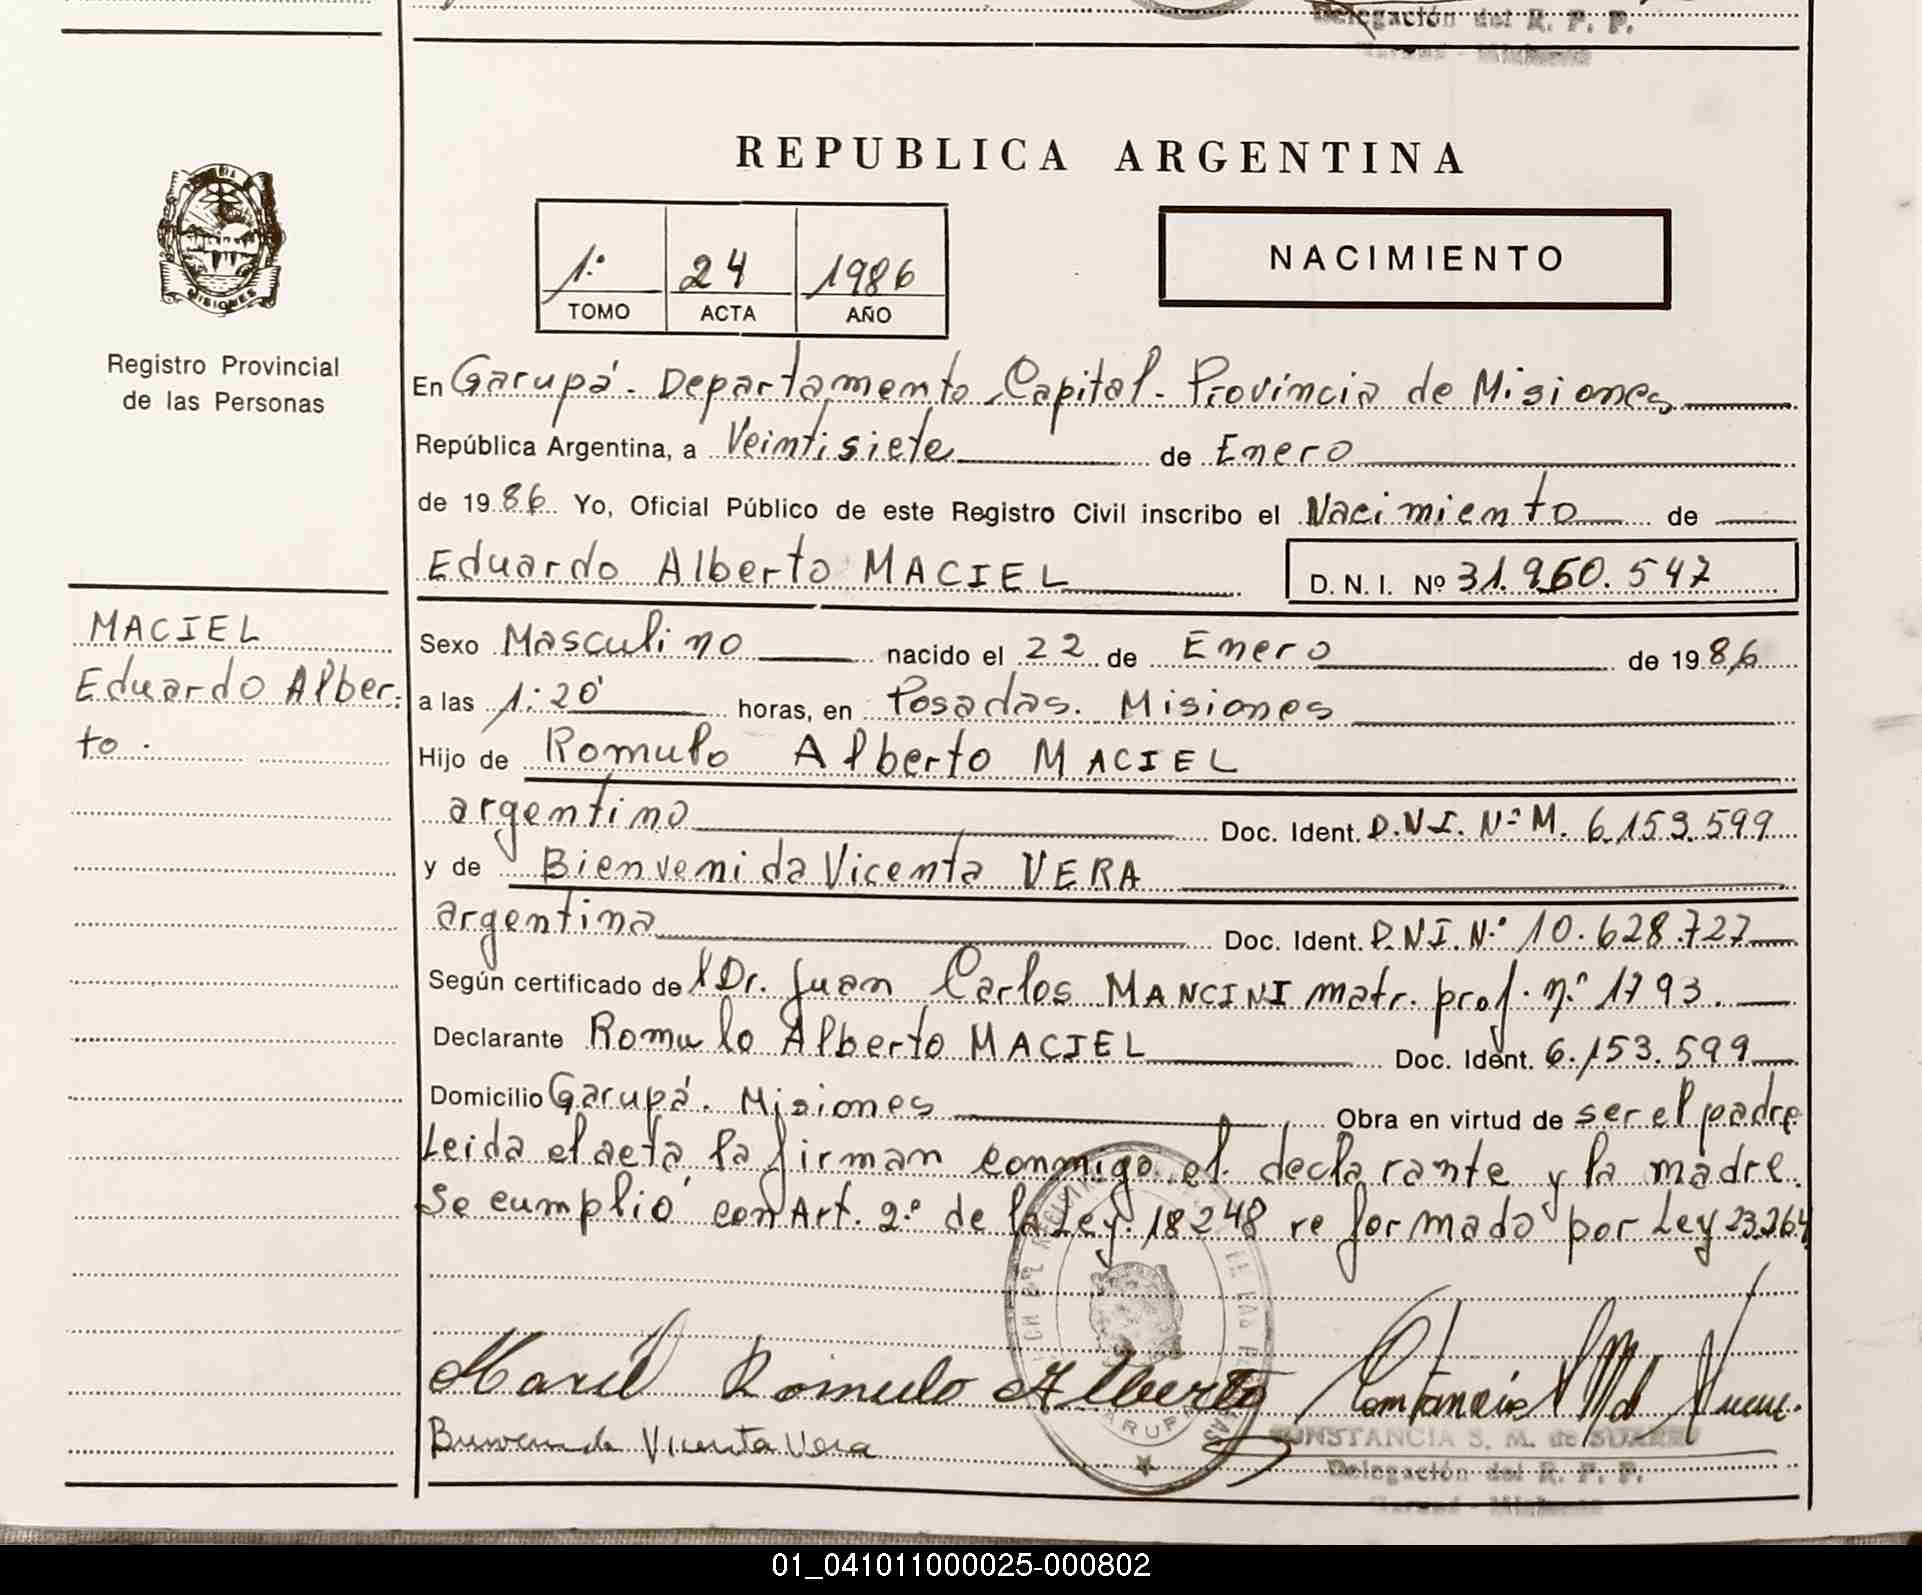 Delegación del R. P. P.
REPUBLICA ARGENTINA
1º 24 1986
TOMO ACTA AÑO
NACIMIENTO
MISIONES
Registro Provincial
de las Personas
En Garupá. Departamento Capital. Provincia de Misiones
República Argentina, a Veintisiete de Enero
de 1986. Yo, Oficial Público de este Registro Civil inscribo el Nacimiento de
Eduardo Alberto MACIEL D. N. I. Nº 31.960.547
MACIEL
Eduardo Alber-
to.
Sexo Masculino nacido el 22 de Enero de 1986
a las 1:20' horas, en Posadas. Misiones
Hijo de Romulo Alberto MACIEL
argentino Doc. Ident. D.N.I. Nº M. 6.153.599
y de Bienvenida Vicenta VERA
argentina Doc. Ident. D.N.I. Nº 10.628.727
Según certificado del Dr. Juan Carlos MANCINI matr. prof. nº 1793.
Declarante Romulo Alberto MACIEL Doc. Ident. 6.153.599
Domicilio Garupá. Misiones Obra en virtud de ser el padre
Leida el acta la firman conmigo el declarante y la madre.
Se cumplió con Art. 2º de la Ley 18248 reformado por Ley 23.264
Maciel Romulo Alberto
Bienvenida Vicenta Vera
CONSTANCIA S. M. de SUAREZ
Delegación del R. P. P.
01_041011000025-000802